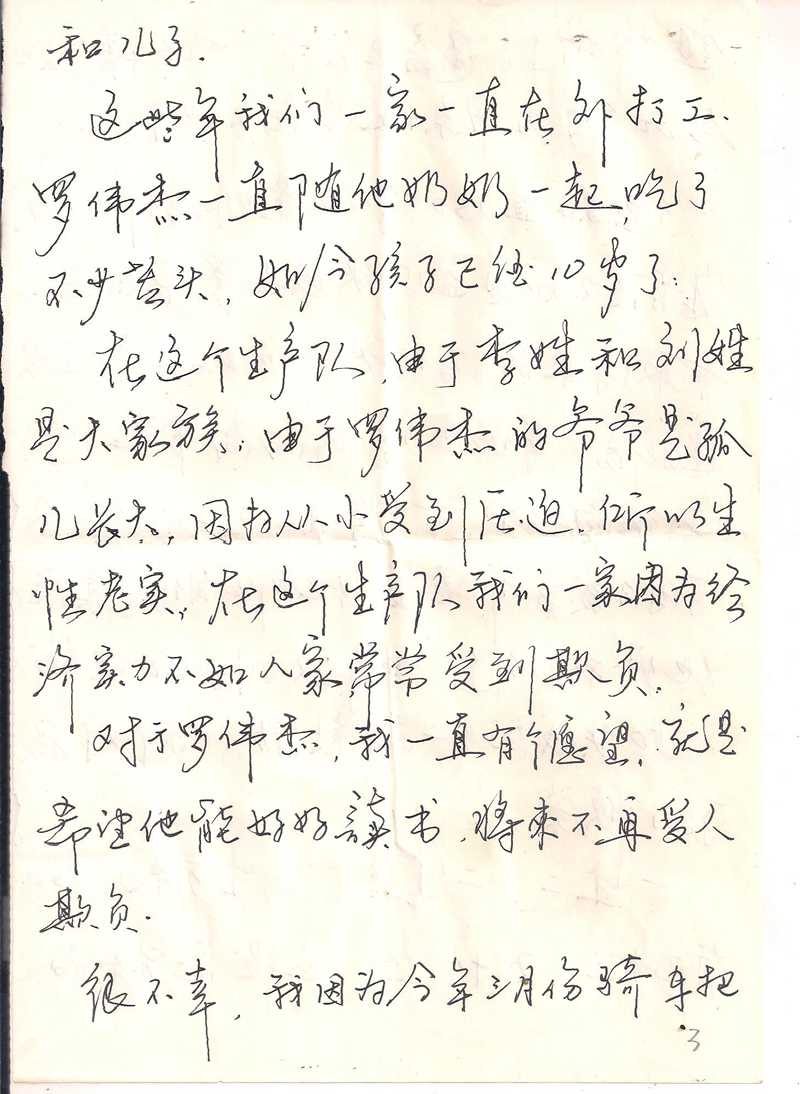 和儿子.
这些年我们一家一直在外打工.
罗伟杰一直随他奶奶一起,吃了
不少苦头,如今孩子已经10岁了.
在这个生产队,由于李姓和刘姓
是大家族,由于罗伟杰的爷爷是孤
儿长大,因为从小受到压迫.所以生
性老实,在这个生产队我们一家因为经
济实力不如人家,常常受到欺负.
对于罗伟杰,我一直有个愿望,就是
希望他能好好讀书,将来不再受人
欺负.
很不幸,我因为今年三月份骑车把
3